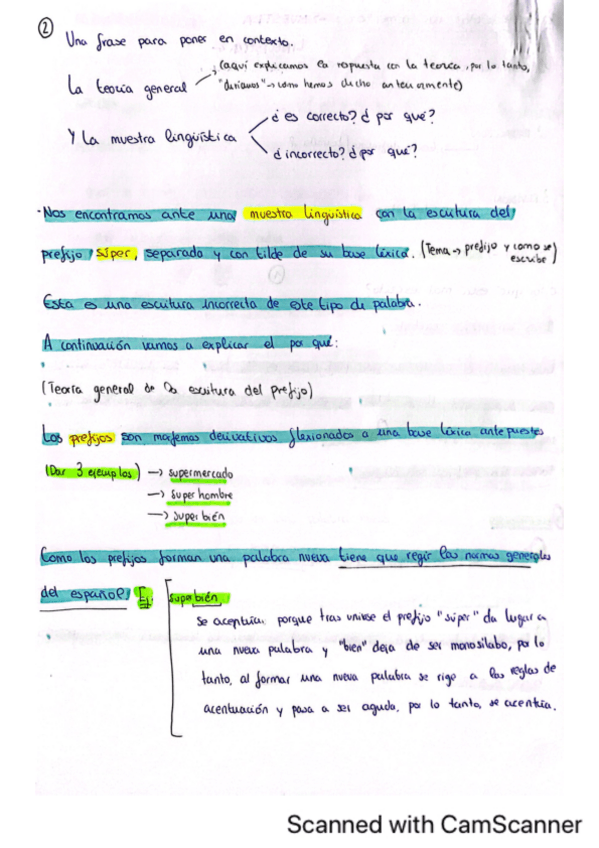 ② Una frase para poner en contexto.
La teoría general → (aquí explicamos la respuesta con la teoría, por lo tanto,
"diríamos" → como hemos dicho anteriormente)
Y la muestra lingüística
¿es correcto? ¿por qué?
¿incorrecto? ¿por qué?
· Nos encontramos ante una muestra lingüística con la escritura del
prefijo súper, separado y con tilde de su base léxica. (Tema → prefijo y como se
escribe)
Esta es una escritura incorrecta de este tipo de palabra.
A continuación vamos a explicar el por qué:
(Teoría general de la escritura del prefijo)
Los prefijos son morfemas derivativos flexionados a una base léxica antepuestos
(Dar 3 ejemplos) → supermercado
→ super hombre
→ super bién
Como los prefijos forman una palabra nueva tiene que regir las normas generales
del español. Ej super bién
Se acentúa porque tras unirse el prefijo "súper" da lugar a
una nueva palabra y "bien" deja de ser monosílabo, por lo
tanto, al formar una nueva palabra se rige a las reglas de
acentuación y pasa a ser aguda, por lo tanto, se acentúa.
Scanned with CamScanner